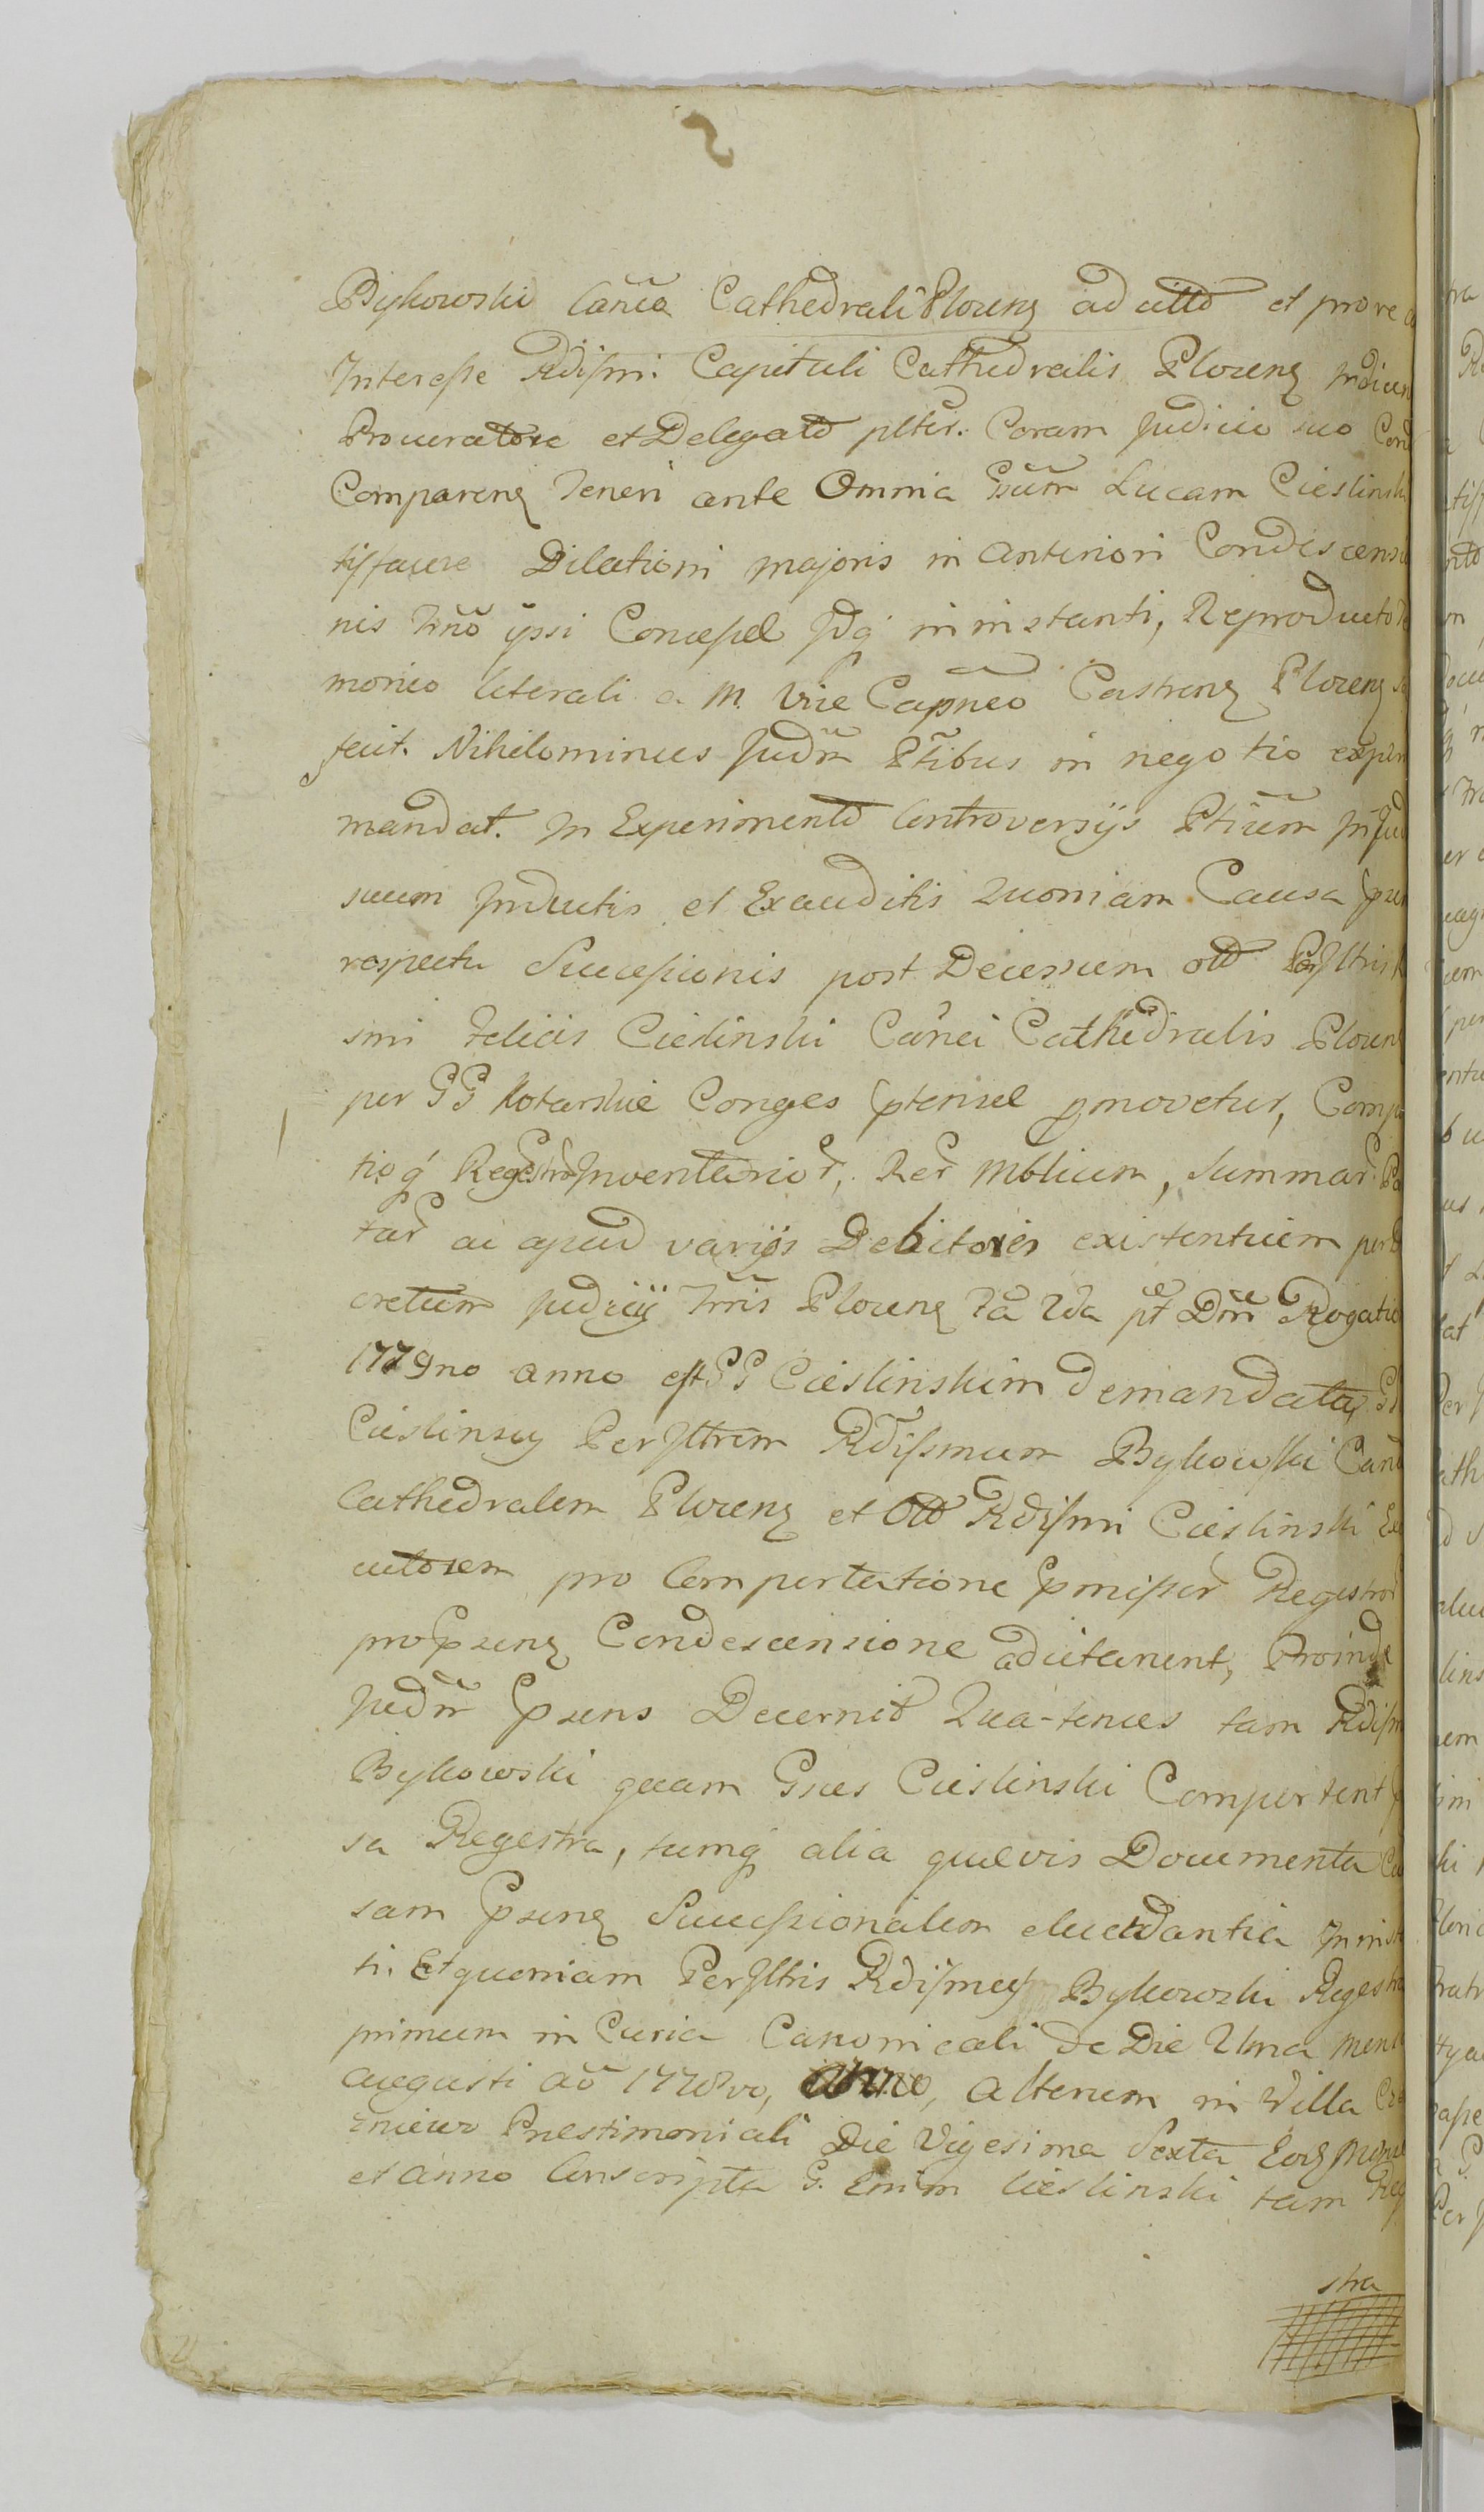 Bykowski Cañco Cathedrali Plocenq ad actto et prove
Interesse Rdissmi Capituli Cathedralis Plocenq
Procuratore et Delegato plter. Coram Judicio suo Cond
Comparenq Teneri ante Omnia Gsum Lucam Cieslinski
tisfacere Dilationi majoris in anteriori Condescensio
nis Trño ipsi Concessæ Idq in instanti, Reproducto
monio literali a M. Vice Capneo Castrenq Plocenq
fecit. Nihilominus Judm Ptibus in negotio experi
mandat. In Experimento Controversijs Ptium in Jud
suum Inductis et Exauditis Quoniam Causa
respectu Successionis post Decessum olto Perllris
smi Felicis Cieslinski Cañci Cathedralis Plocen
per GG Kotarskie Conges ptensæ pmovetur, Comp
tioq Regestror Inventarior, Rer Mblium, Summar
tar ac apud varijs Debitores existentium per
cretum Judicij Trris Plocenq
1779no anno est GG Cieslinskim demandata, GG
Cieslinscy Perllrem Rdissmum Bykowski Can
Cathedralem Plocenq et Olto Rdissmi Cieslinski Exe
cutorem pro Comportatione pmissor Regestror
pro psenq Condescensione adcitarunt, Proinde
Judm psens Decernit Qua-tenus tam Rdissm
Bykowski quam Gsus Cieslinski Comportent
sa Regestra, tumq alia quævis Documenta Ca
sam psenq Successionalem elucidantia In inst
ti. Et quoniam Perllris Rdissmus Bykowski Regestra
primum in Curia Canonicali de Die Uma Mens
Augusti aõ 1778vo, alterum in Villa
Prestimoniali Die Vigesima Sexta Eorq Mens
et anno Conscripta G. Enim Cieslinski tam Reg
stra